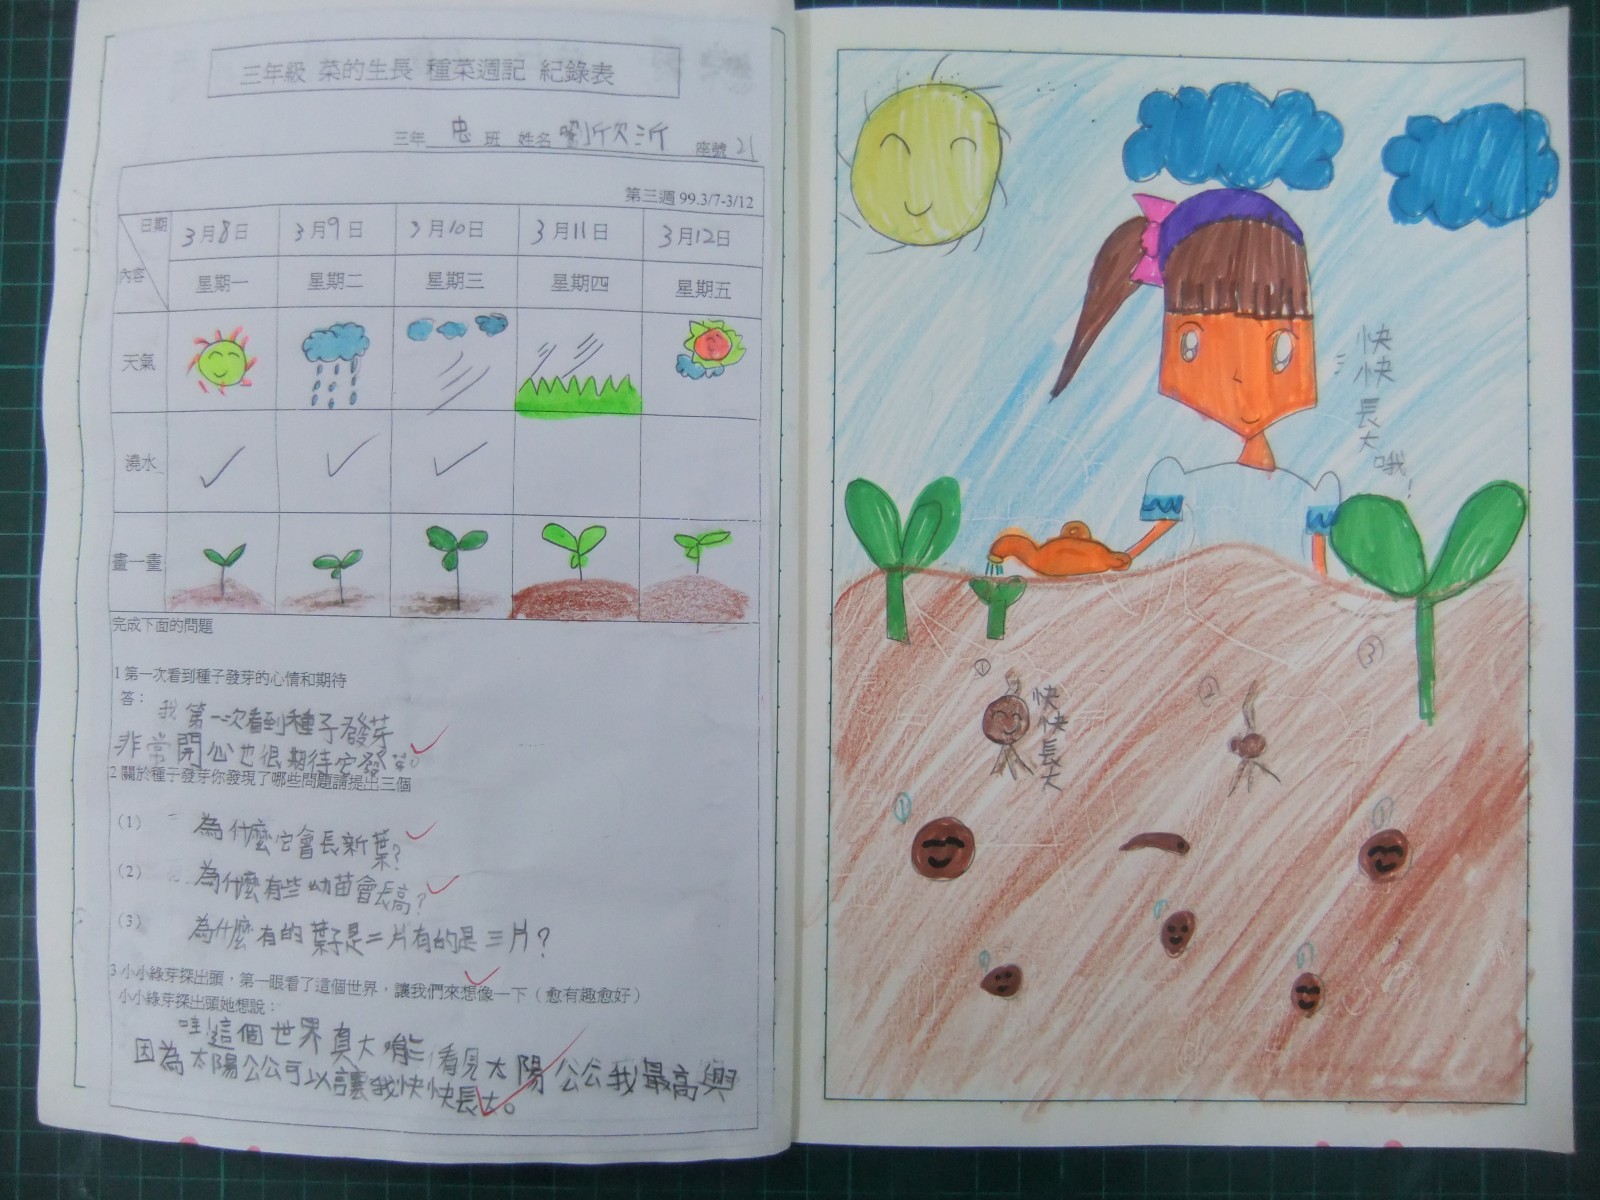 三年級 菜的生長 種菜週記 紀錄表
三年 忠 班 姓名 劉欣沂 座號 21
第三週 99.3/7-3/12
日期 3月8日 3月9日 3月10日 3月11日 3月12日
內容 星期一 星期二 星期三 星期四 星期五
天氣
澆水
畫一畫
完成下面的問題
1 第一次看到種子發芽的心情和期待
答：
我第一次看到種子發芽
非常開心也很期待它發芽。
2 關於種子發芽你發現了哪些問題請提出三個
(1) 為什麼它會長新葉?
(2) 為什麼有些幼苗會長高?
(3) 為什麼有的葉子是二片有的是三片?
3 小小綠芽探出頭，第一眼看了這個世界，讓我們來想像一下（愈有趣愈好）
小小綠芽探出頭她想說：
哇!這個世界真大 看見太陽公公我最高興
因為太陽公公可以讓我快快長大。
快快長大哦!
③
① ②
快快長大